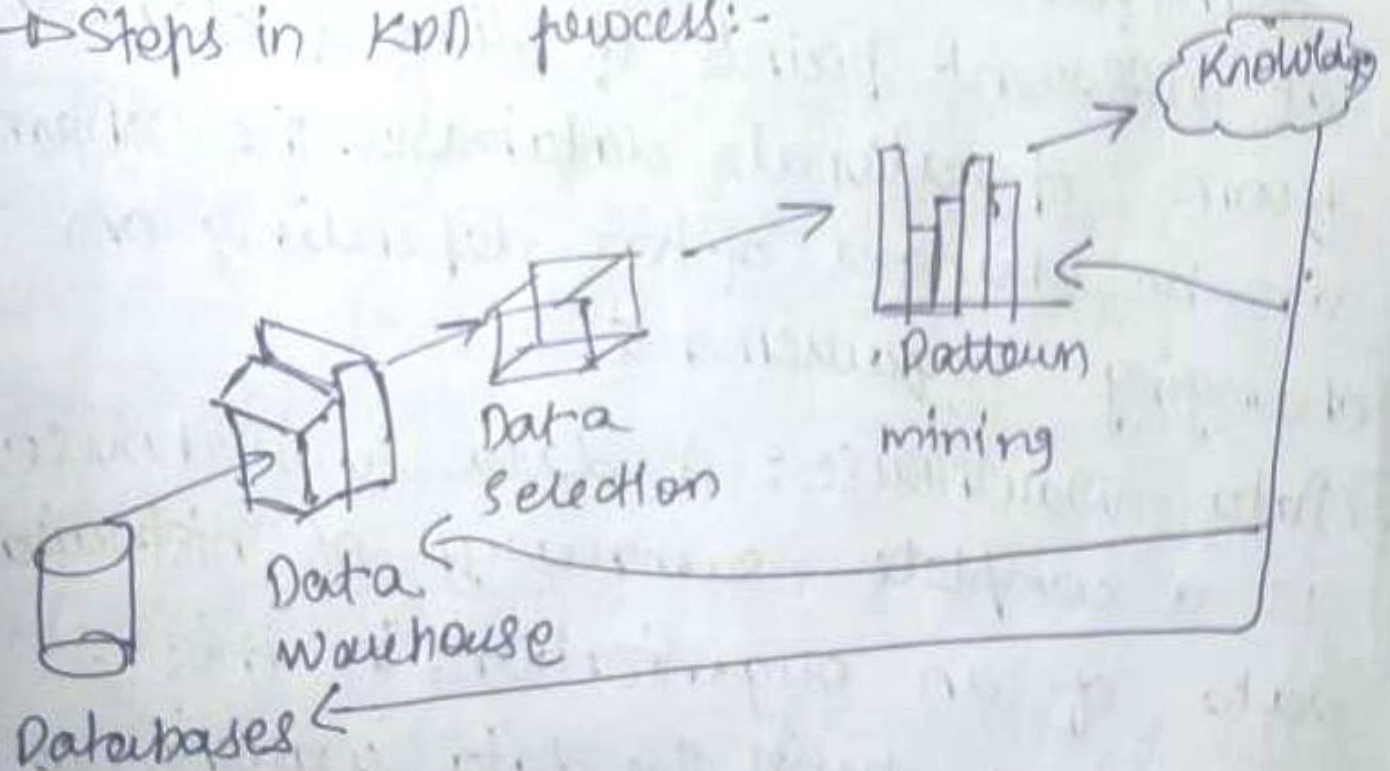 Steps in KDD process:-
Knowldge
Pattern
mining
Data
Selection
Data
Warehouse
Databases